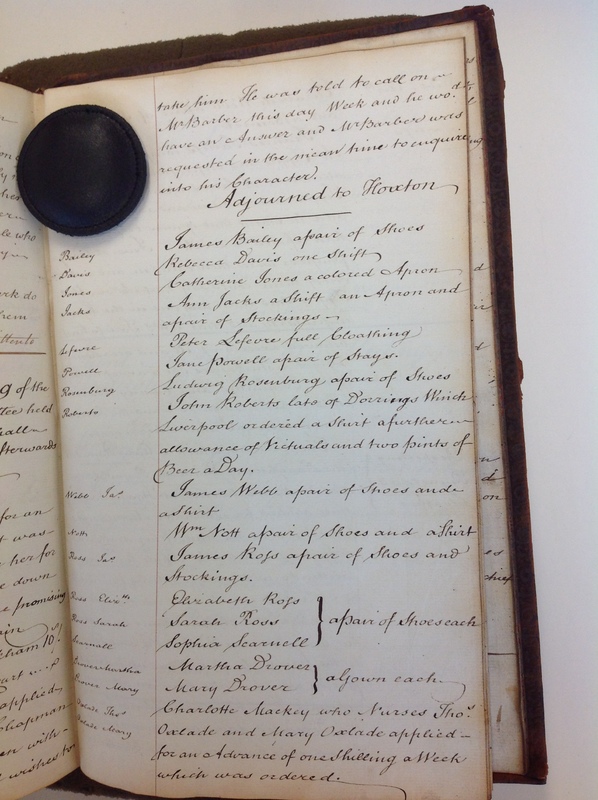 take him He was told to call on
Mr Barber this day Week and he wod.
have an Answer and Mr Barber was
requested in the mean time to enquire
into his Character.
Adjourned to Hoxton
Bailey James Bailey a pair of Shoes
Davis Rebecca Davis one Shift
Jones Catherine Jones a colored Apron
Jacks Ann Jacks a Shift an Apron and
a pair of Stockings
Lefevre Peter Lefevre full Cloathing
Powell Jane Powell a pair of Stays.
Rosenburg Ludwig Rosenburg a pair of Shoes
Roberts John Roberts late of Dorrings Which
Liverpool ordered a Shirt a further
allowance of Victuals and two pints of
Beer a Day.
Webb Jas James Webb a pair of Shoes and
a Shirt
Nott Wm Nott a pair of Shoes and a Shirt
Ross Jas James Ross a pair of Shoes and
Stockings.
Ross Elizth Elizabeth Ross
Ross Sarah Sarah Ross } a pair of Shoes each
Scarnell Sophia Scarnell
Drover Martha Martha Drover
Drover Mary Mary Drover } a Gown each.
Oxlade Thos Charlotte Mackey who Nurses Thos.
Oxlade Mary Oxlade and Mary Oxlade applied
for an Advance of one Shilling a Week
which was ordered.
g of the
tee held
afterwards
for an
t was
her for
e down
e promising
applied
Chapman
en with
wishes to